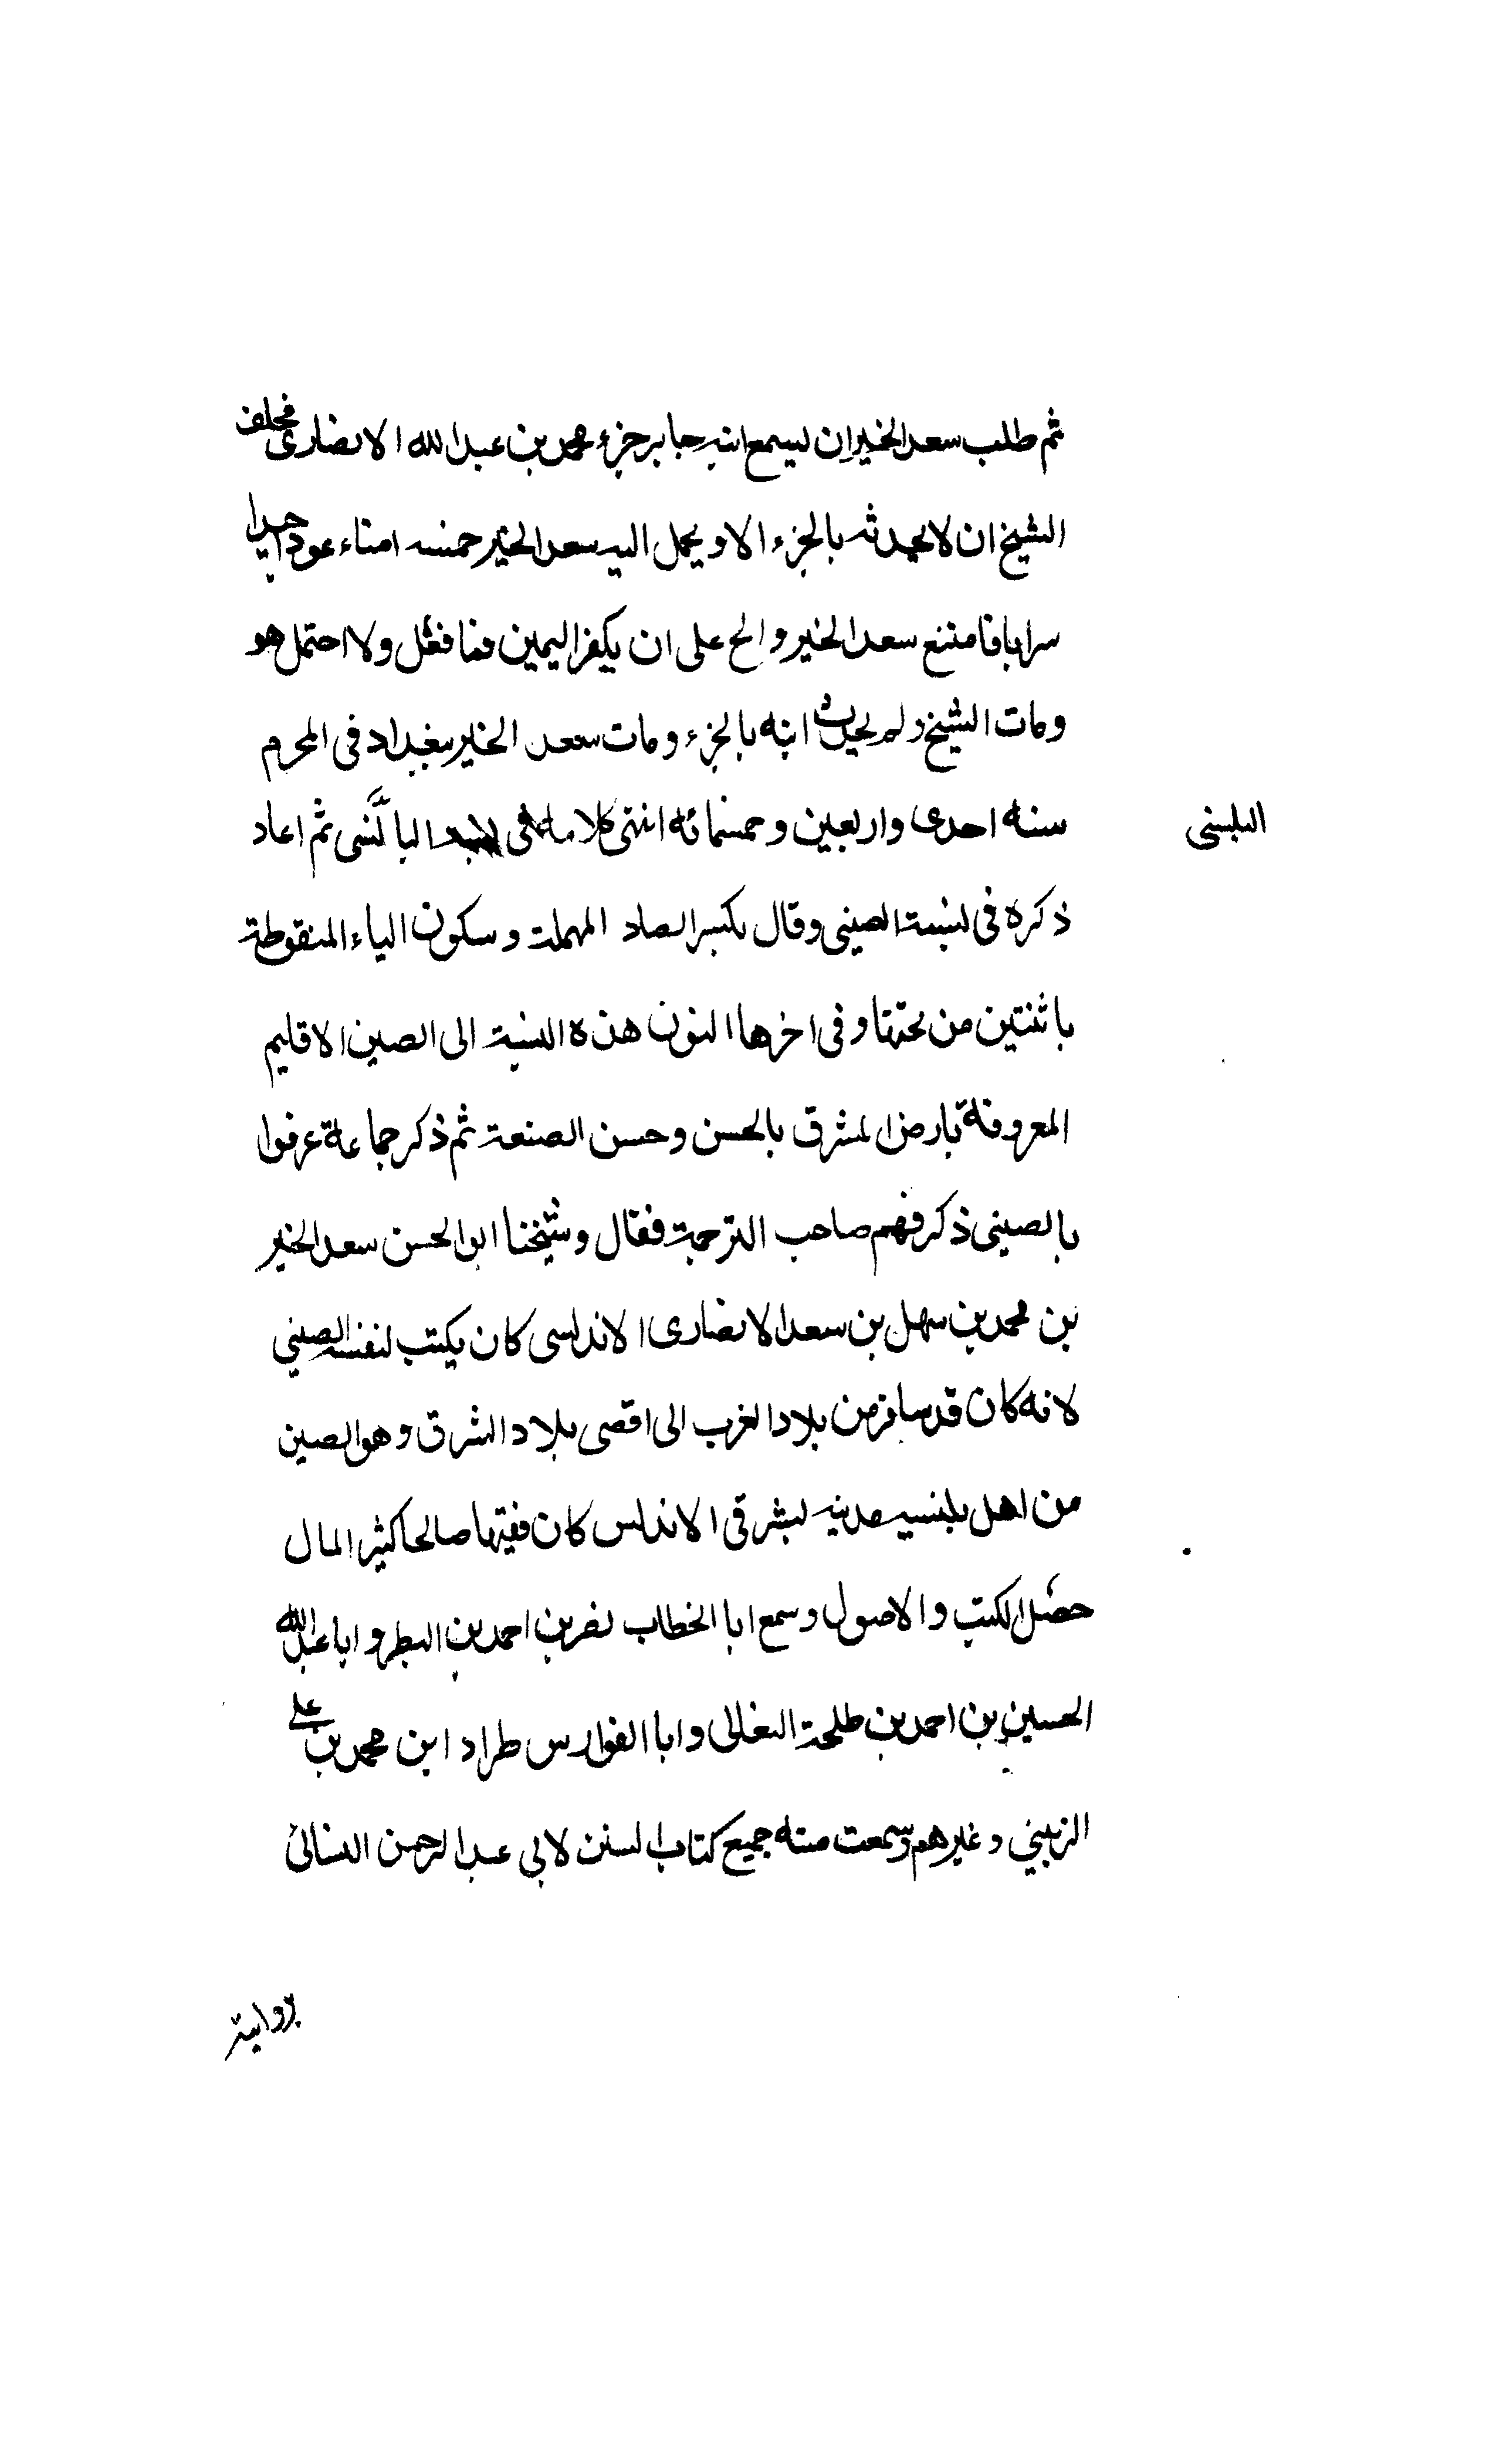 ثم طلب سعد الخير ان ليسمع ابنه جابر جزء محمد بن عبد الله الانصارى فحلف
الشيخ ان لا يحدثه بالجزء الا ويحمل اليه سعد الخير خمسه امناء عودا جيدا
سرابا فامتنع سعد الخير والح على ان يكفر اليمين فما فعل ولا احتمل هو
ومات الشيخ ولم يحدث ابنه بالجزء ومات سعد الخير ببغداد فى المحرم
سنه احدى واربعين وخمسمائه انتهى كلامه فى البا لنسى ثم اعاد
البلسنى
ذكره فى نسبة الصينى وقال بكسر الصاد المهملة وسكون الياء المنقوطة
باثنتين من تحتها وفى اخرها النون هذه النسبة الى الصين الاقليم
المعروفة بارض المشرق بالحسن وحسن الصنعة ثم ذكر جماعة عرفوا
بالصينى ذكر فيهم صاحب الترجمة فقال وشيخنا ابو الحسن سعد الخير
بن محمد بن سهل بن سعد الانصارى الاندلسى كان يكتب لنفسه الصيني
لانه كان قد سافر من بلاد الغرب الى اقصى بلاد الشرق وهو الصين
من اهل بلنسيه مدينه بشرقى الاندلس كان فقيها صالحا كثير المال
حصّل الكتب والاصول وسمع ابا الخطاب نصر بن احمد بن البطر و ابا عبد الله
الحسين بن احمد بن طلحة النعالى وابا الفوارس طراد ابن محمد بن على
الزينبي وغيرهم وسمعت منه جميع كتاب السنن لابي عبد الرحمن النسائى
بروايته